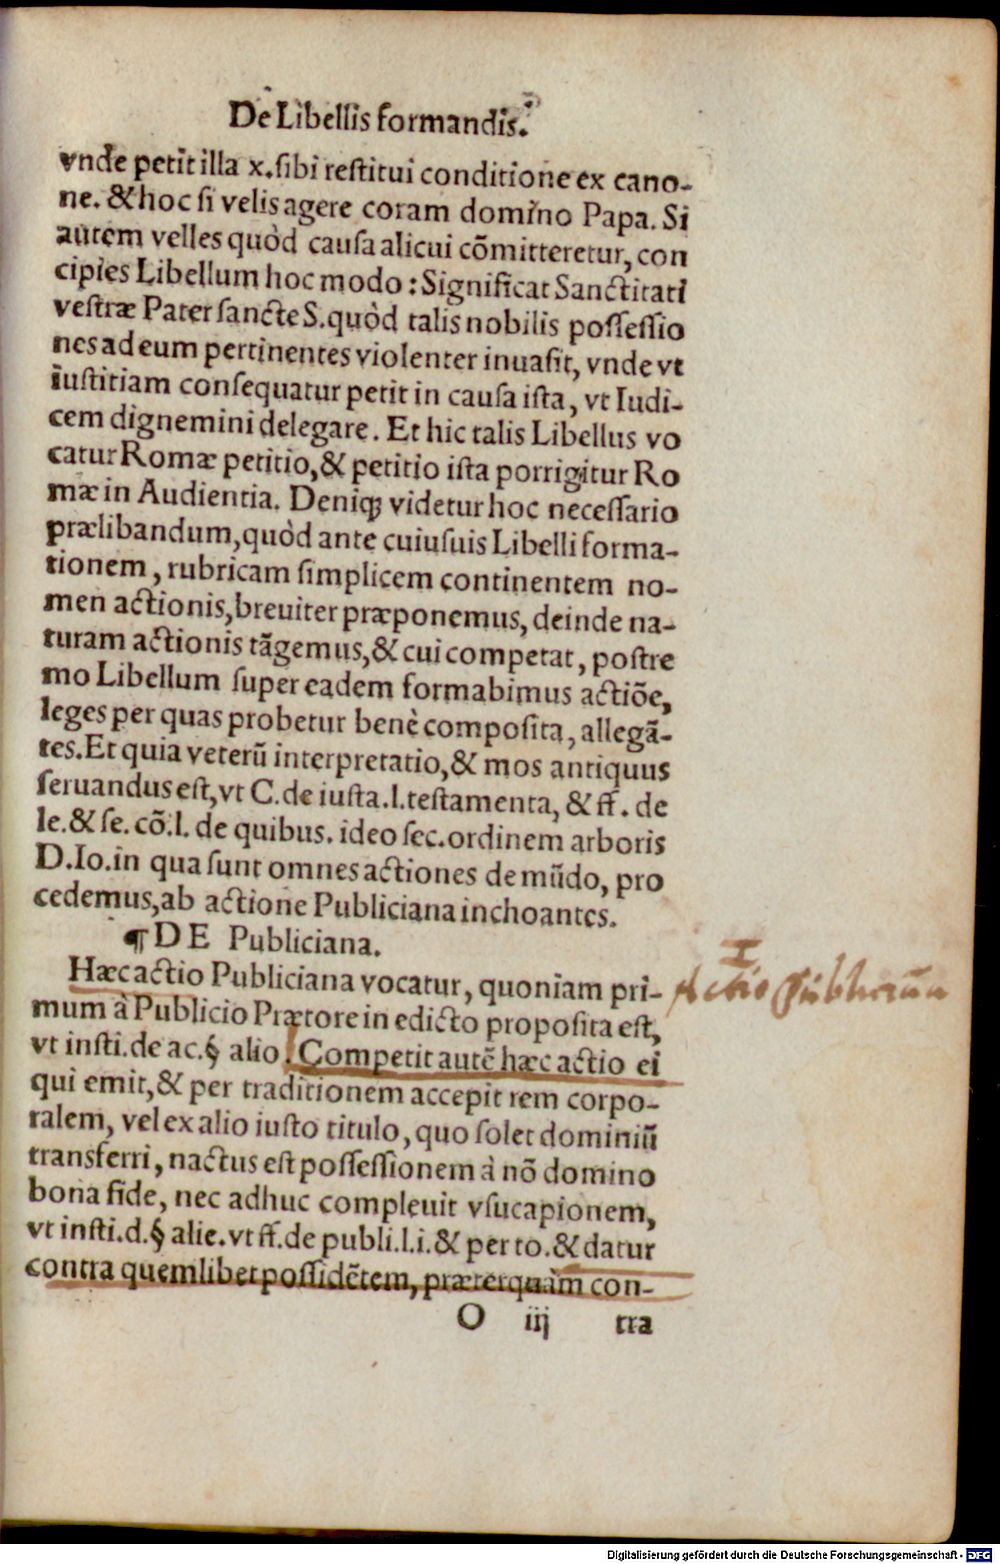 De Libellis formandis.
vnde petit illa x. sibi restitui conditione ex cano-
ne. & hoc si velis agere coram domino Papa. Si
autem velles quòd causa alicui cõmitteretur, con
cipies Libellum hoc modo: Significat Sanctitati
vestræ Pater sancte S. quòd talis nobilis possessio
nes ad eum pertinentes violenter inuasit, vnde vt
iustitiam consequatur petit in causa ista, vt Iudi-
cem dignemini delegare. Et hic talis Libellus vo
catur Romæ petitio, & petitio ista porrigitur Ro
mæ in Audientia. Deniqꝫ videtur hoc necessario
prælibandum, quòd ante cuiusuis Libelli forma-
tionem, rubricam simplicem continentem no-
men actionis, breuiter præponemus, deinde na-
turam actionis tãgemus, & cui competat, postre
mo Libellum super eadem formabimus actiõe,
leges per quas probetur benè composita, allegã-
tes. Et quia veterũ interpretatio, & mos antiquus
seruandus est, vt C. de iusta. l. testamenta, & ff. de
le. & se. cõ. l. de quibus. ideo sec. ordinem arboris
D. Io. in qua sunt omnes actiones de mũdo, pro
cedemus, ab actione Publiciana inchoantes.
¶ DE Publiciana.
Hæc actio Publiciana vocatur, quoniam pri-
mum à Publicio Prætore in edicto proposita est,
vt insti. de ac. § alio. Competit autẽ hæc actio ei
qui emit, & per traditionem accepit rem corpo-
ralem, vel ex alio iusto titulo, quo solet dominiũ
transferri, nactus est possessionem à nõ domino
bona fide, nec adhuc compleuit vsucapionem,
vt insti. d. § alie. vt ff. de publi. l. i. & per to. & datur
contra quemlibet possidẽtem, præterquàm con-
O iij tra
I
Actio
Digitalisierung gefördert durch die Deutsche Forschungsgemeinschaft - DFG